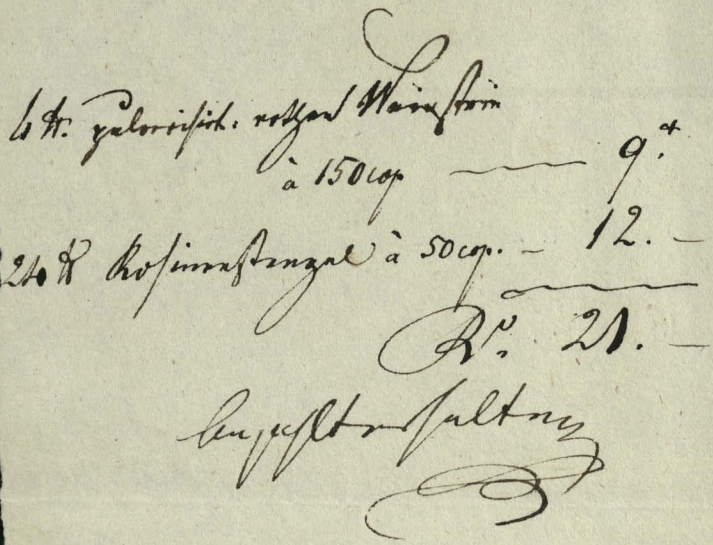 6 ℔. pulverisirt. rothen Weinstein
à 150 cop — 9.
24 ℔ Rosinenstengel à 50 cop. – 12. –
Ro. 21. –
bezahlt erhalten